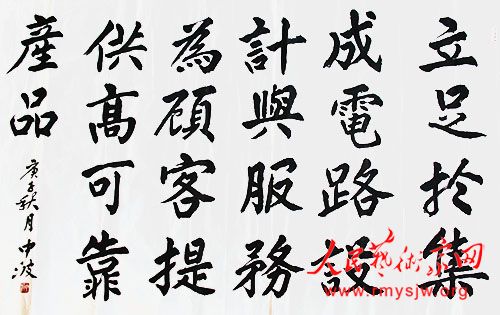 立足扵集
成電路設
計與服務
為顧客提
供高可靠
產品
庚子秋月中波
人民藝術家网
www.rmysjw.org